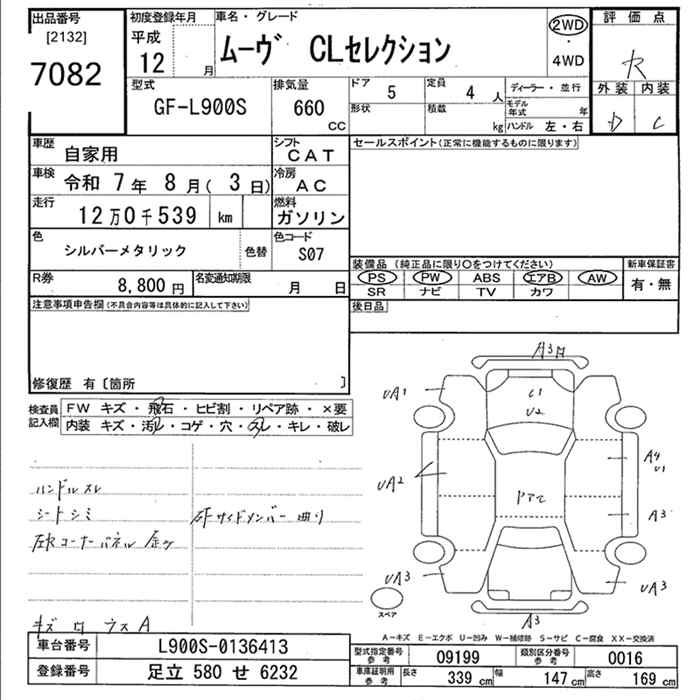 出品番号
[2132]
7082
初度登録年月
平成
12 月
車名・グレード
ムーヴ CLセレクション
2WD
・
4WD
評価点
R
外装 内装
D C
型式
GF-L900S
排気量
660
CC
ドア
5
定員
4 人
形状
積載
kg
ディーラー・並行
モデル年式 年
ハンドル 左・右
車歴
自家用
シフト
CAT
車検
令和 7年 8月( 3日)
冷房
AC
走行
12万0千539 km
燃料
ガソリン
色
シルバーメタリック
色替
色コード
S07
R券
8,800円
名変通知期限
月 日
セールスポイント(正常に機能するものに限ります)
装備品 (純正品に限り○をつけてください)
PS PW ABS エアB AW
SR ナビ TV カワ
新車保証書
有・無
後日品
注意事項申告欄(不具合内容等は具体的に記入して下さい)
修復歴 有〔箇所 〕
検査員記入欄
FW キズ・飛石・ヒビ割・リペア跡・×要
内装 キズ・汚レ・コゲ・穴・スレ・キレ・破レ
ハンドルスレ
シートシミ
サイドメンバー曲り
コーナーパネル
A
A3
UA1
U2
UA2
A4
U1
A3
UA3
UA3
A3
スペア
A-キズ E-エクボ U-凹み W-補修跡 S-サビ C-腐食 XX-交換済
車台番号
L900S-0136413
登録番号
足立 580 せ 6232
型式指定番号
参考
09199
類別区分番号
参考
0016
車庫証明用
参考
長さ 339 cm
幅 147 cm
高さ 169 cm